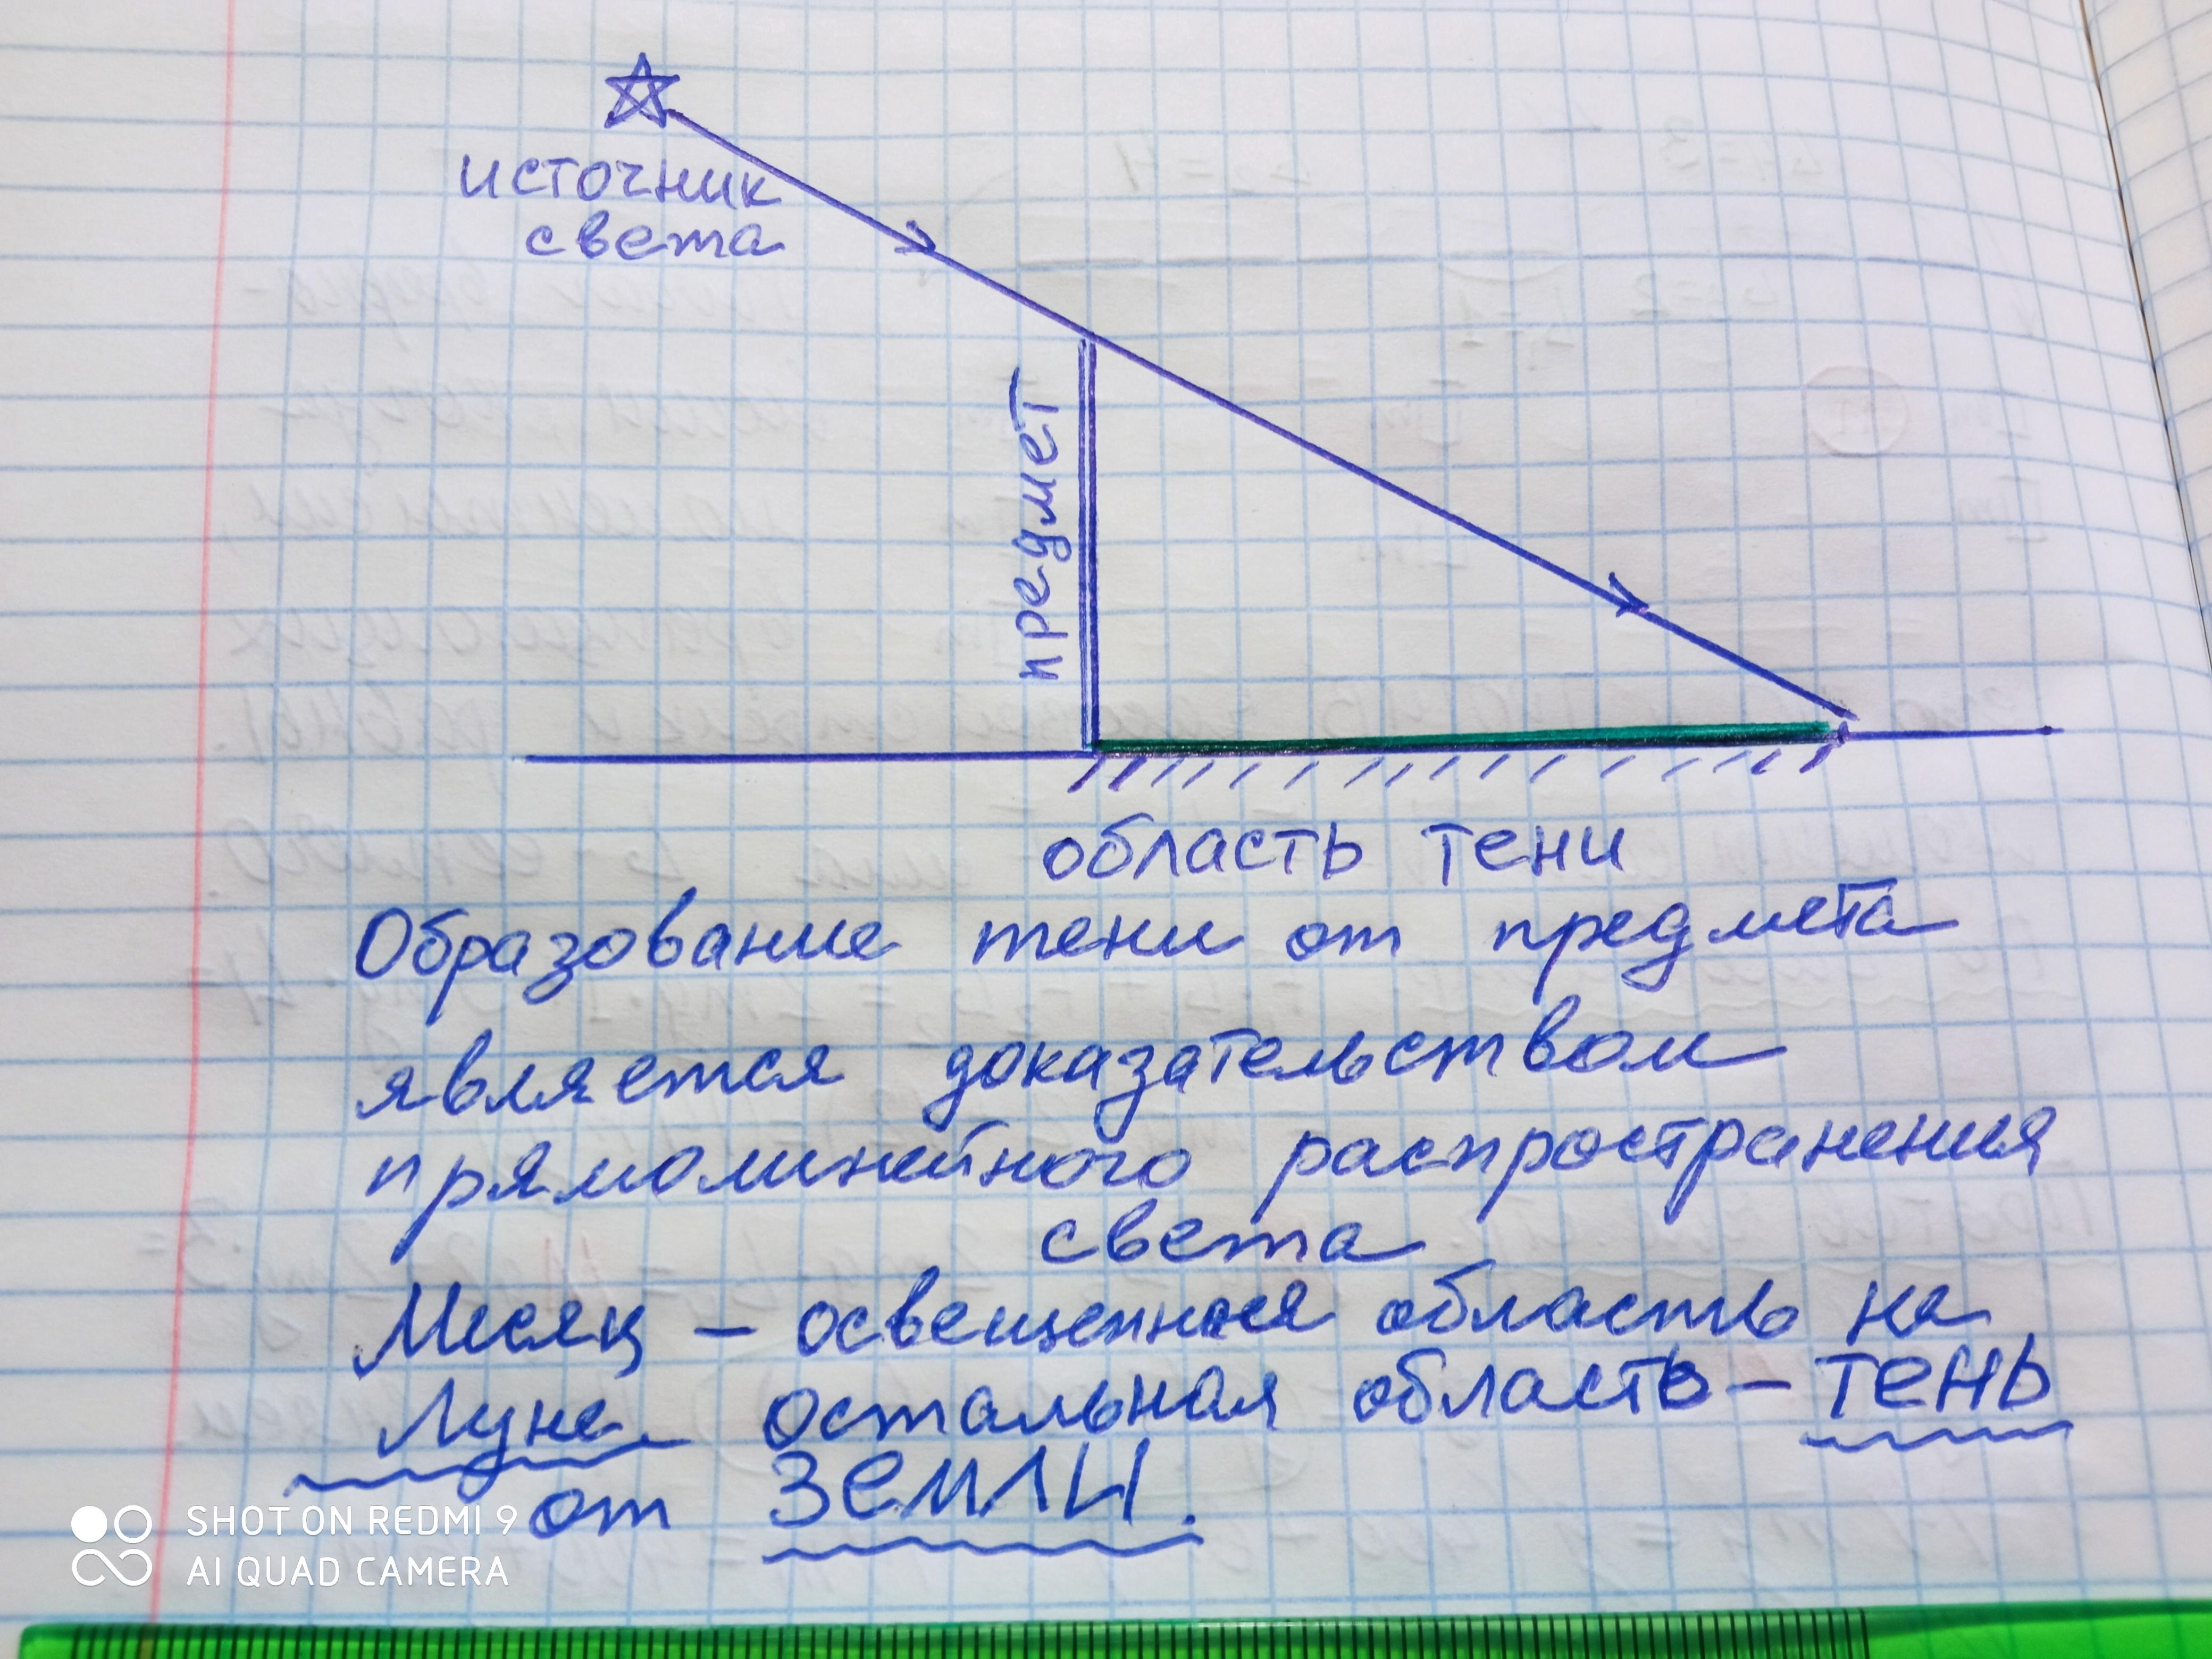 источник
света
предмет
область тени
Образование тени от предмета
является доказательством
прямолинейного распространения
света
Месяц – освещенная область на
Луне остальная область – тень
от Земли.
SHOT ON REDMI 9
AI QUAD CAMERA